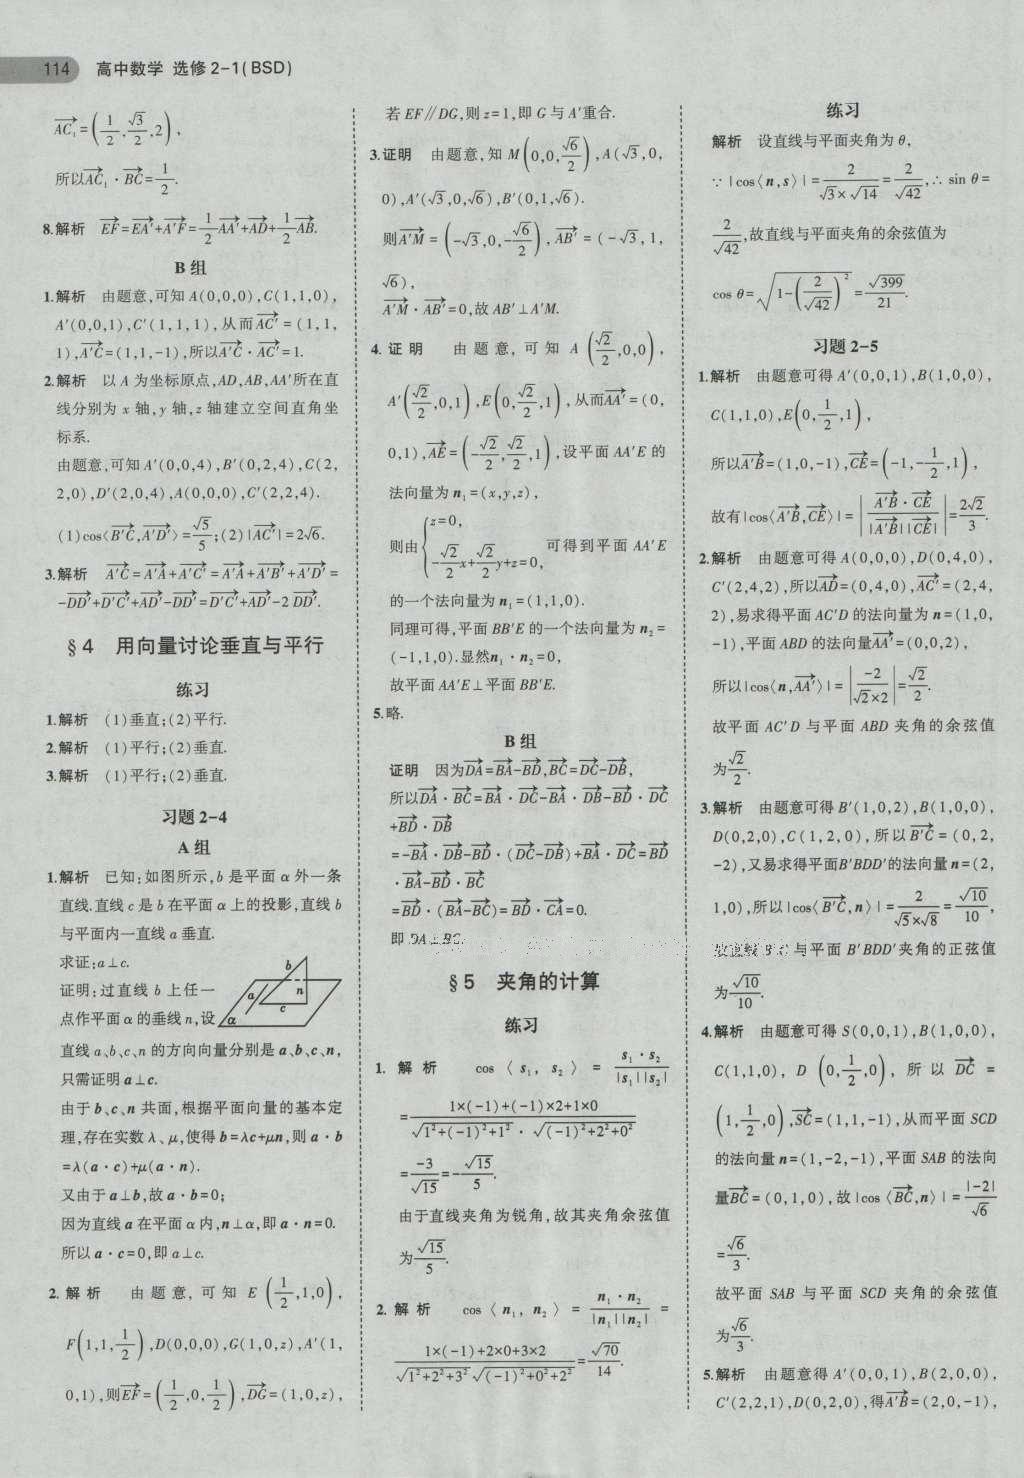 114 高中数学 选修2-1(BSD)
$\overrightarrow{AC_1}=\left(\frac{1}{2},\frac{\sqrt{3}}{2},2\right)$,
所以$\overrightarrow{AC_1}\cdot\overrightarrow{BC}=\frac{1}{2}$.
8.解析 $\overrightarrow{EF}=\overrightarrow{EA'}+\overrightarrow{A'F}=\frac{1}{2}\overrightarrow{AA'}+\overrightarrow{AD}+\frac{1}{2}\overrightarrow{AB}$.
B组
1.解析 由题意,可知A(0,0,0),C(1,1,0),
A'(0,0,1),C'(1,1,1),从而$\overrightarrow{AC'}$=(1,1,
1),$\overrightarrow{A'C}$=(1,1,-1),所以$\overrightarrow{A'C}\cdot\overrightarrow{AC'}$=1.
2.解析 以A为坐标原点,AD,AB,AA'所在直
线分别为x轴,y轴,z轴建立空间直角坐
标系.
由题意,可知A'(0,0,4),B'(0,2,4),C(2,
2,0),D'(2,0,4),A(0,0,0),C'(2,2,4).
(1)cos⟨$\overrightarrow{B'C}$,$\overrightarrow{A'D'}$⟩=$\frac{\sqrt{5}}{5}$;(2)|$\overrightarrow{AC'}$|=2$\sqrt{6}$.
3.解析 $\overrightarrow{A'C}=\overrightarrow{A'A}+\overrightarrow{A'C'}=\overrightarrow{A'A}+\overrightarrow{A'B'}+\overrightarrow{A'D'}$=
$-\overrightarrow{DD'}+\overrightarrow{D'C'}+\overrightarrow{AD'}-\overrightarrow{DD'}=\overrightarrow{D'C'}+\overrightarrow{AD'}-2\overrightarrow{DD'}$.
§4 用向量讨论垂直与平行
练习
1.解析 (1)垂直;(2)平行.
2.解析 (1)平行;(2)垂直.
3.解析 (1)平行;(2)垂直.
习题2-4
A组
1.解析 已知:如图所示,b是平面α外一条
直线.直线c是b在平面α上的投影,直线b
与平面内一直线a垂直.
求证:a⊥c.
证明:过直线b上任一
点作平面α的垂线n,设
b
a
n
c
α
直线a、b、c、n的方向向量分别是a、b、c、n,
只需证明a⊥c.
由于b、c、n共面,根据平面向量的基本定
理,存在实数λ、μ,使得b=λc+μn,则a·b
=λ(a·c)+μ(a·n).
又由于a⊥b,故a·b=0;
因为直线a在平面α内,n⊥α,即a·n=0.
所以a·c=0,即a⊥c.
2.解析 由题意,可知E$\left(\frac{1}{2},1,0\right)$,
F$\left(1,1,\frac{1}{2}\right)$,D(0,0,0),G(1,0,z),A'(1,
0,1),则$\overrightarrow{EF}=\left(\frac{1}{2},0,\frac{1}{2}\right)$,$\overrightarrow{DG}$=(1,0,z),
若EF∥DG,则z=1,即G与A'重合.
3.证明 由题意,知M$\left(0,0,\frac{\sqrt{6}}{2}\right)$,A($\sqrt{3}$,0,
0),A'($\sqrt{3}$,0,$\sqrt{6}$),B'(0,1,$\sqrt{6}$).
则$\overrightarrow{A'M}=\left(-\sqrt{3},0,-\frac{\sqrt{6}}{2}\right)$,$\overrightarrow{AB'}$=(-$\sqrt{3}$,1,
$\sqrt{6}$),
$\overrightarrow{A'M}\cdot\overrightarrow{AB'}$=0,故AB'⊥A'M.
4.证明 由题意,可知A$\left(\frac{\sqrt{2}}{2},0,0\right)$,
A'$\left(\frac{\sqrt{2}}{2},0,1\right)$,E$\left(0,\frac{\sqrt{2}}{2},1\right)$,从而$\overrightarrow{AA'}$=(0,
0,1),$\overrightarrow{AE}=\left(-\frac{\sqrt{2}}{2},\frac{\sqrt{2}}{2},1\right)$,设平面AA'E的
法向量为$n_1$=(x,y,z),
则由$\begin{cases}z=0,\\-\frac{\sqrt{2}}{2}x+\frac{\sqrt{2}}{2}y+z=0,\end{cases}$可得到平面AA'E
的一个法向量为$n_1$=(1,1,0).
同理可得,平面BB'E的一个法向量为$n_2$=
(-1,1,0).显然$n_1\cdot n_2$=0,
故平面AA'E⊥平面BB'E.
5.略.
B组
证明 因为$\overrightarrow{DA}=\overrightarrow{BA}-\overrightarrow{BD}$,$\overrightarrow{BC}=\overrightarrow{DC}-\overrightarrow{DB}$,
所以$\overrightarrow{DA}\cdot\overrightarrow{BC}=\overrightarrow{BA}\cdot\overrightarrow{DC}-\overrightarrow{BA}\cdot\overrightarrow{DB}-\overrightarrow{BD}\cdot\overrightarrow{DC}$
$+\overrightarrow{BD}\cdot\overrightarrow{DB}$
$=-\overrightarrow{BA}\cdot\overrightarrow{DB}-\overrightarrow{BD}\cdot(\overrightarrow{DC}-\overrightarrow{DB})+\overrightarrow{BA}\cdot\overrightarrow{DC}=\overrightarrow{BD}$
$\cdot\overrightarrow{BA}-\overrightarrow{BD}\cdot\overrightarrow{BC}$
$=\overrightarrow{BD}\cdot(\overrightarrow{BA}-\overrightarrow{BC})=\overrightarrow{BD}\cdot\overrightarrow{CA}=0$.
即DA⊥BC.
§5 夹角的计算
练习
1.解析 cos⟨$s_1$,$s_2$⟩=$\frac{s_1\cdot s_2}{|s_1||s_2|}$
$=\frac{1×(-1)+(-1)×2+1×0}{\sqrt{1^2+(-1)^2+1^2}\cdot\sqrt{(-1)^2+2^2+0^2}}$
$=\frac{-3}{\sqrt{15}}=-\frac{\sqrt{15}}{5}$.
由于直线夹角为锐角,故其夹角余弦值
为$\frac{\sqrt{15}}{5}$.
2.解析 cos⟨$n_1$,$n_2$⟩=$\frac{n_1\cdot n_2}{|n_1||n_2|}$=
$\frac{1×(-1)+2×0+3×2}{\sqrt{1^2+2^2+3^2}\sqrt{(-1)^2+0^2+2^2}}=\frac{\sqrt{70}}{14}$.
练习
解析 设直线与平面夹角为θ,
∵|cos⟨n,s⟩|=$\frac{2}{\sqrt{3}×\sqrt{14}}=\frac{2}{\sqrt{42}}$,∴sin θ=
$\frac{2}{\sqrt{42}}$,故直线与平面夹角的余弦值为
cos θ=$\sqrt{1-\left(\frac{2}{\sqrt{42}}\right)^2}=\frac{\sqrt{399}}{21}$.
习题2-5
1.解析 由题意可得A'(0,0,1),B(1,0,0),
C(1,1,0),E$\left(0,\frac{1}{2},1\right)$,
所以$\overrightarrow{A'B}$=(1,0,-1),$\overrightarrow{CE}=\left(-1,-\frac{1}{2},1\right)$,
故有|cos⟨$\overrightarrow{A'B}$,$\overrightarrow{CE}$⟩|=$\left|\frac{\overrightarrow{A'B}\cdot\overrightarrow{CE}}{|\overrightarrow{A'B}||\overrightarrow{CE}|}\right|=\frac{2\sqrt{2}}{3}$.
2.解析 由题意可得A(0,0,0),D(0,4,0),
C'(2,4,2),所以$\overrightarrow{AD}$=(0,4,0),$\overrightarrow{AC'}$=(2,4,
2),易求得平面AC'D的法向量为n=(1,0,
-1),平面ABD的法向量$\overrightarrow{AA'}$=(0,0,2),
所以|cos⟨n,$\overrightarrow{AA'}$⟩|=$\left|\frac{-2}{\sqrt{2}×2}\right|=\frac{\sqrt{2}}{2}$.
故平面AC'D与平面ABD夹角的余弦值
为$\frac{\sqrt{2}}{2}$.
3.解析 由题意可得B'(1,0,2),B(1,0,0),
D(0,2,0),C(1,2,0),所以$\overrightarrow{B'C}$=(0,2,
-2),又易求得平面B'BDD'的法向量n=(2,
1,0),所以|cos⟨$\overrightarrow{B'C}$,n⟩|=$\frac{2}{\sqrt{5}×\sqrt{8}}=\frac{\sqrt{10}}{10}$,
故直线B'C与平面B'BDD'夹角的正弦值
为$\frac{\sqrt{10}}{10}$.
4.解析 由题意可得S(0,0,1),B(1,0,0),
C(1,1,0),D$\left(0,\frac{1}{2},0\right)$,所以$\overrightarrow{DC}$=
$\left(1,\frac{1}{2},0\right)$,$\overrightarrow{SC}$=(1,1,-1),从而平面SCD
的法向量n=(1,-2,-1),平面SAB的法向
量$\overrightarrow{BC}$=(0,1,0),故|cos⟨$\overrightarrow{BC}$,n⟩|=$\frac{|-2|}{\sqrt{6}}$
$=\frac{\sqrt{6}}{3}$.
故平面SAB与平面SCD夹角的余弦值
为$\frac{\sqrt{6}}{3}$.
5.解析 由题意得A'(0,0,1),B(2,0,0),
C'(2,2,1),D(0,2,0),得$\overrightarrow{A'B}$=(2,0,-1),